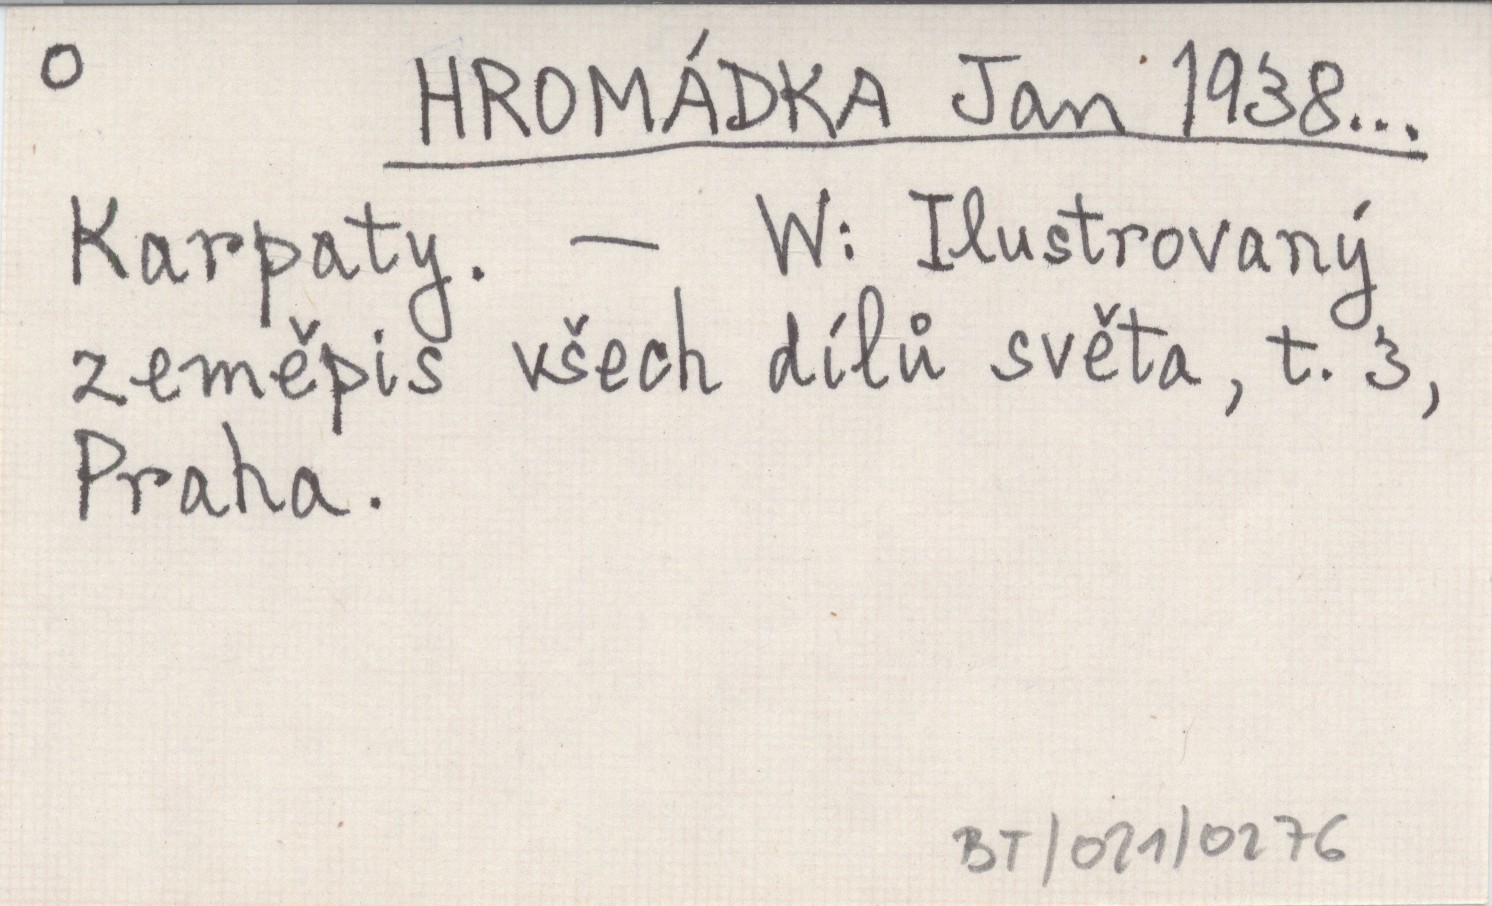 O
HROMÁDKA Jan 1938...
Karpaty. — W: Ilustrovaný
zeměpis všech dílů světa, t. 3,
Praha.
BT/021/0276